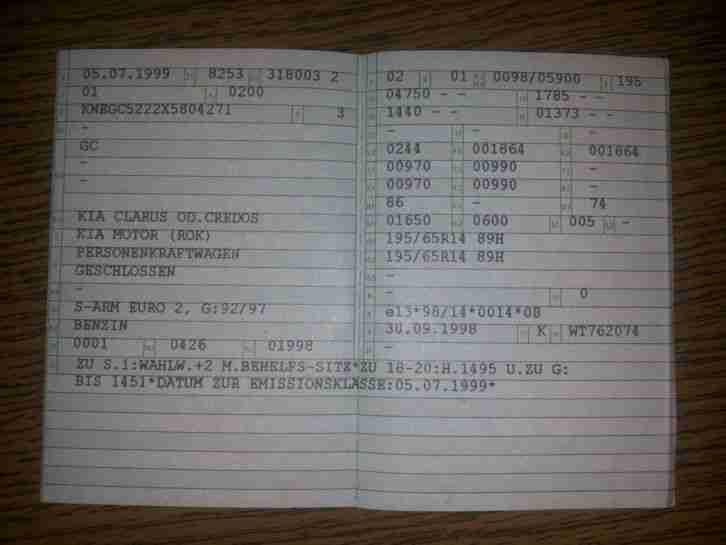 05.07.1999 8253 318003 2
01 0200
KNEGC5222X5804271 3
-
GC
-
-
KIA CLARUS OD.CREDOS
KIA MOTOR (ROK)
PERSONENKRAFTWAGEN
GESCHLOSSEN
-
S-ARM EURO 2, G:92/97
BENZIN
0001 0426 01998
02 01 0098/05900 195
04750 - - 1785 - -
1440 - - 01373 - -
- - -
0244 001864 001864
00970 00990 -
00970 00990 -
86 - 74
01650 0600 005 -
195/65R14 89H
195/65R14 89H
-
- 0
e13*98/14*0014*08
30.09.1998 K WT762074
-
ZU S.1:WAHLW.+2 M.BEHELFS-SITZ*ZU 18-20:H.1495 U.ZU G:
BIS 1451*DATUM ZUR EMISSIONSKLASSE:05.07.1999*